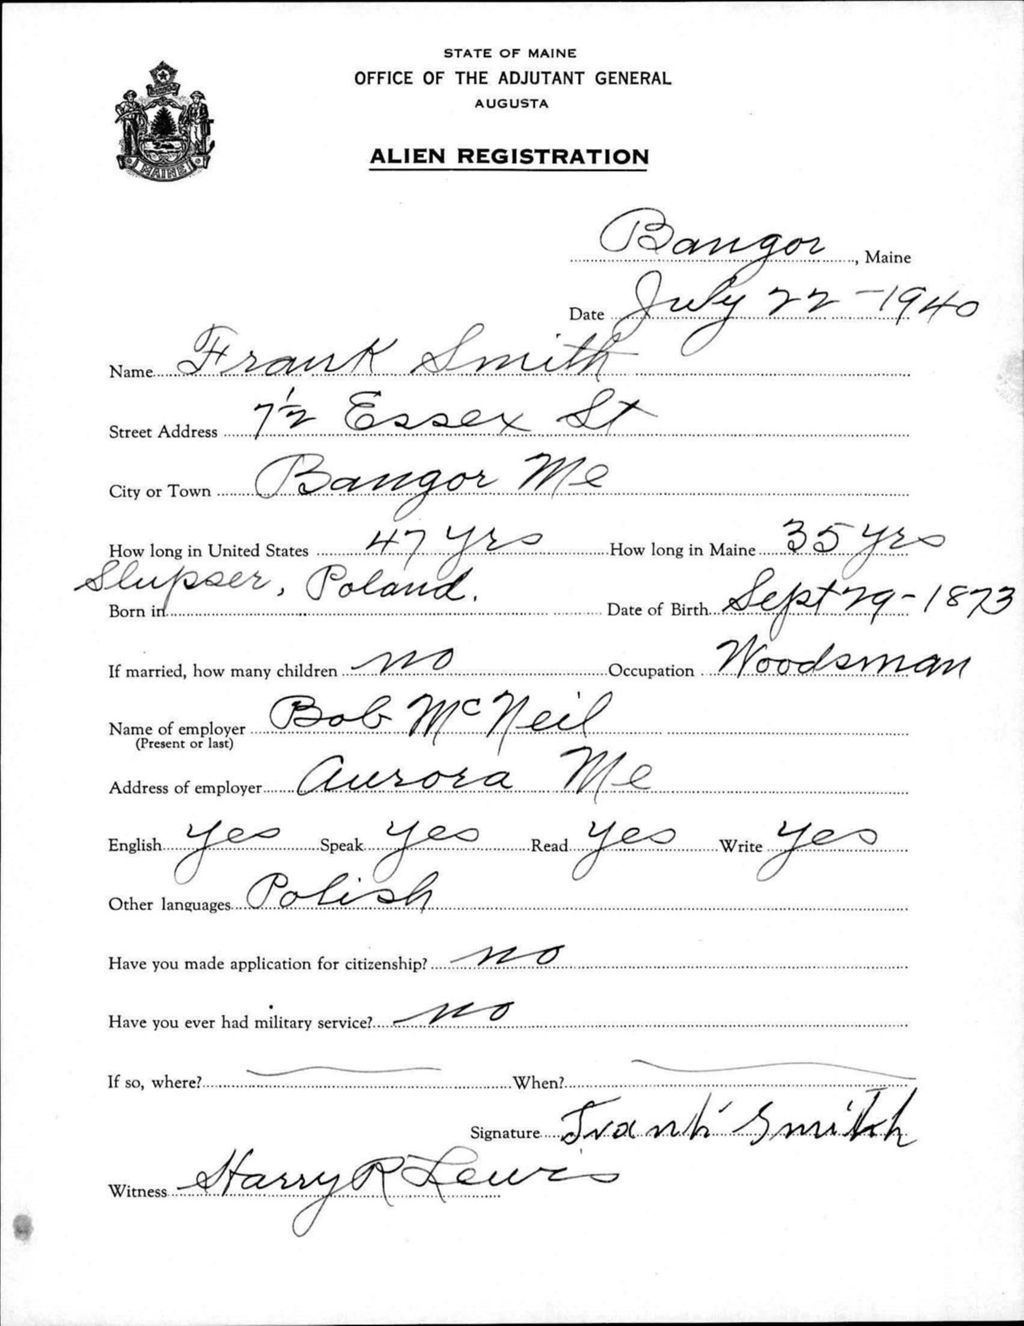 STATE OF MAINE
OFFICE OF THE ADJUTANT GENERAL
AUGUSTA
MAINE
ALIEN REGISTRATION
Bangor, Maine
Date July 22-1940
Name Frank Smith
Street Address 7½ Essex St
City or Town Bangor Me
How long in United States 47 yrs How long in Maine 35 yrs
Born in Slupser, Poland. Date of Birth Sept 29-1873
If married, how many children no Occupation Woodsman
Name of employer Bob McNeil
(Present or last)
Address of employer Aurora Me
English yes Speak yes Read yes Write yes
Other languages Polish
Have you made application for citizenship? no
Have you ever had military service? no
If so, where? When?
Signature Frank Smith
Witness Harry R Lewis